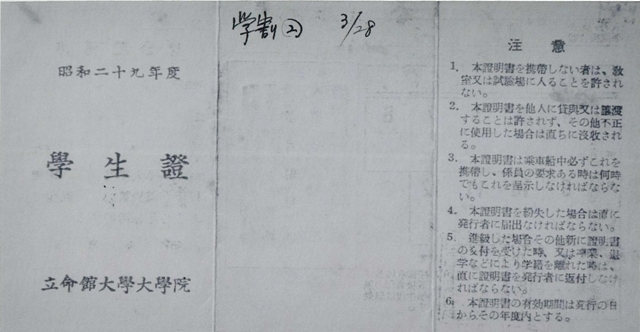 昭和二十九年度
學生證
立命館大學大學院
学割② 3/28
注意
1. 本證明書を携帶しない者は、教
室又は試驗場に入ることを許され
ない。
2. 本證明書を他人に貸與又は讓渡
することは許されず、その他不正
に使用した場合は直ちに沒收され
る。
3. 本證明書は乘車船中必ずこれを
携帶し、係員の要求ある時は何時
でもこれを呈示しなければならな
い。
4. 本證明書を紛失した場合は直に
発行者に届出なければならない。
5. 進級した場合その他新に證明書
の交付を受けた時、又は卒業、退
学などにより学籍を離れた時は、
直に證明書を発行者に返付しなけ
ればならない。
6. 本證明書の有効期間は発行の日
からその年度内とする。